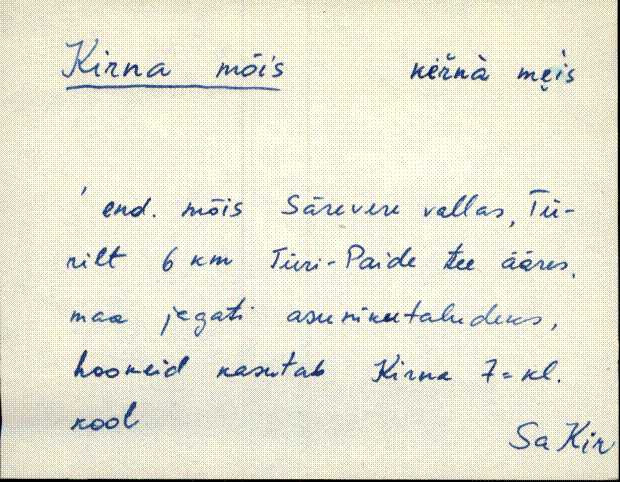 Kirna mõis kèr̆nà mẹi̬s
' end. mõis Särevere vallas, Tü-
rilt 6 km Türi-Paide tee ääres,
maa jagati asunikutaludeks,
hooneid kasutab Kirna 7=kl.
kool
Sa Kir